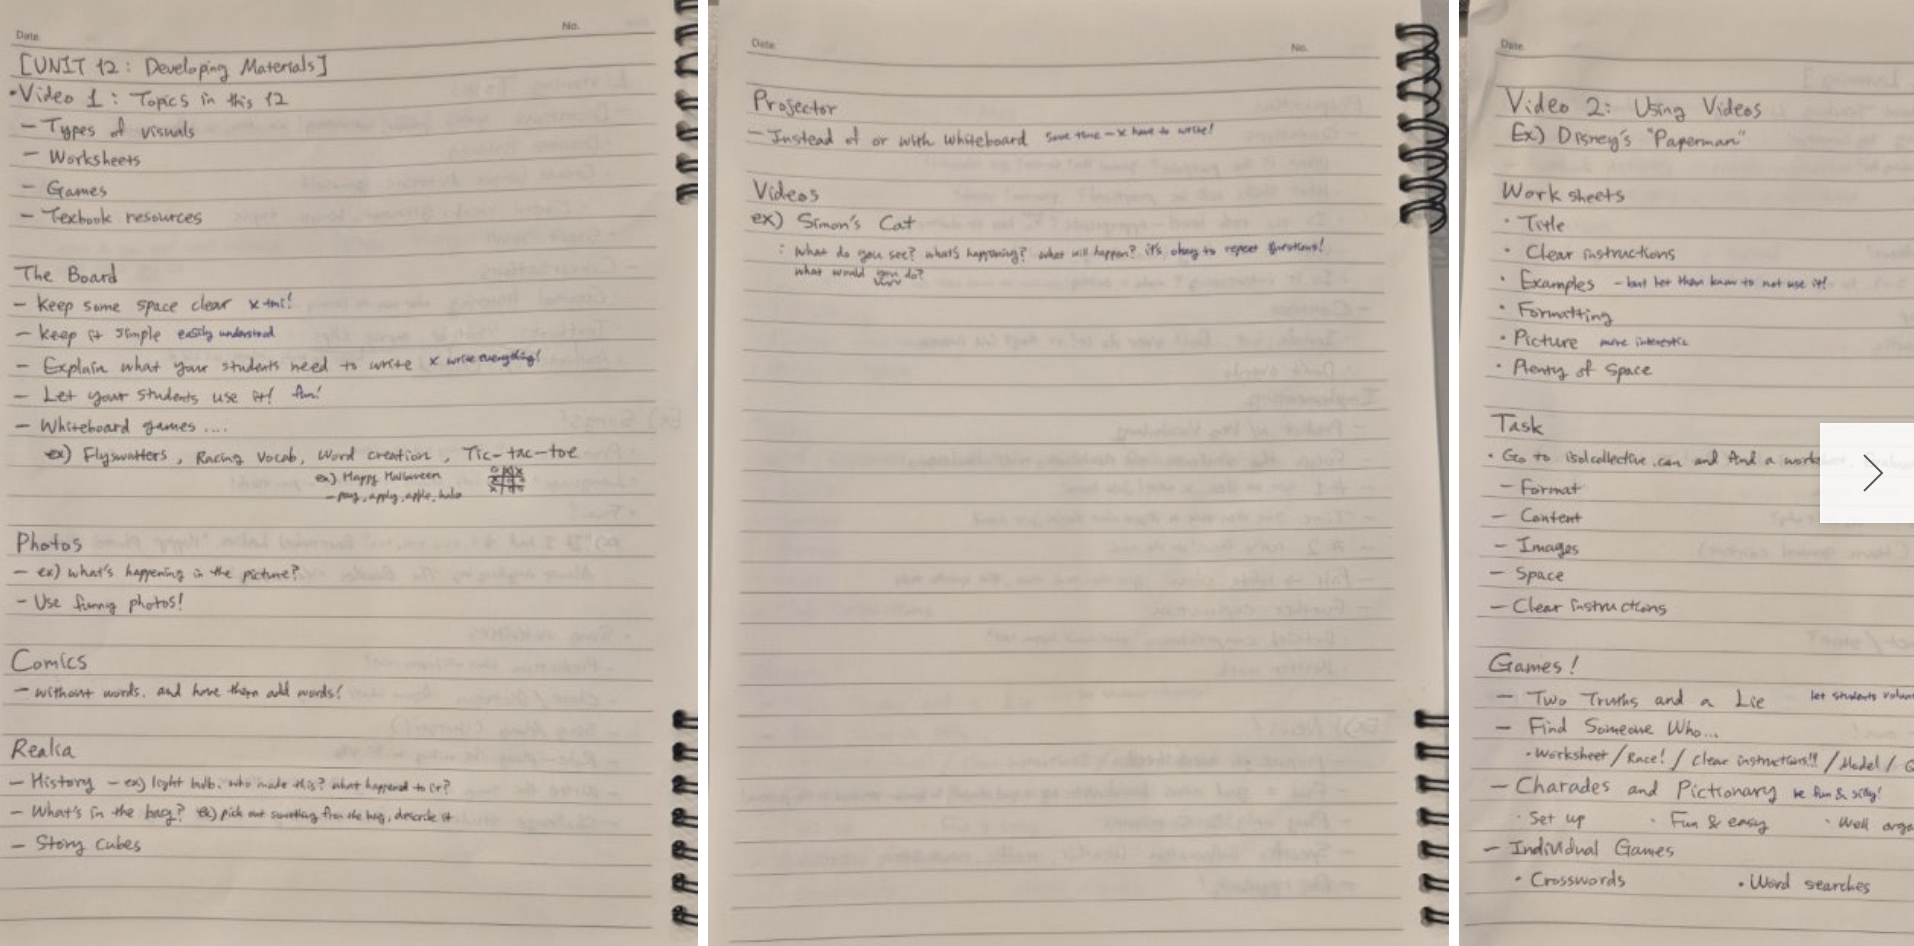 Date.
No.
[UNIT 12 : Developing Materials]
• Video 1 : Topics in this 12
- Types of visuals
- Worksheets
- Games
- Texbook resources
The Board
- Keep some space clear x
- Keep it simple easily understood
- Explain what your students need to write x write everything!
- Let your students use it! fun!
- Whiteboard games ....
ex) Flyswatters, Racing Vocab, Word creation, Tic-tac-toe
ex) Happy Halloween
- pay, apply, apple, halo
Photos
- ex) what's happening in the picture?
- Use funny photos!
Comics
- without words. and have them add words!
Realia
- History - ex) light bulb. who made this? what happened to it?
- What's in the bag? ex) pick out something from the bag, describe it
- Story cubes
Date.
No.
Projector
- Instead of or with whiteboard save time - x have to write!
Videos
ex) Simon's Cat
: What do you see? what's happening? what will happen? it's okay to repeat questions!
what would you do?
Date.
Video 2: Using Videos
Ex) Disney's "Paperman"
Work sheets
• Title
• Clear instructions
• Examples - but let them know to not use it!
• Formatting
• Picture more
• Plenty of Space
Task
• Go to islcollective.com and find a works
- Format
- Content
- Images
- Space
- Clear instructions
Games!
- Two Truths and a Lie let students
- Find Someone Who...
• Worksheet / Race! / clear instructions!! / Model /
- Charades and Pictionary be fun & silly!
• Set up • Fun & easy • Well
- Individual Games
• Crosswords • Word searches